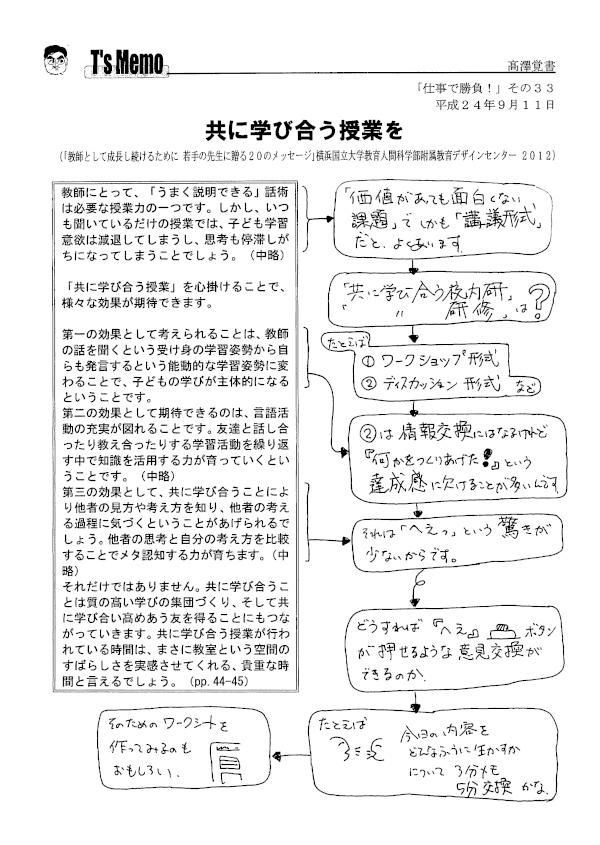 T's Memo
髙澤覚書
「仕事で勝負！」その３３
平成２４年９月１１日
共に学び合う授業を
（「教師として成長し続けるために 若手の先生に贈る２０のメッセージ」横浜国立大学教育人間科学部附属教育デザインセンター ２０１２）
教師にとって、「うまく説明できる」話術
は必要な授業力の一つです。しかし、いつ
も聞いているだけの授業では、子ども学習
意欲は減退してしまうし、思考も停滞しが
ちになってしまうことでしょう。（中略）
「共に学び合う授業」を心掛けることで、
様々な効果が期待できます。
第一の効果として考えられることは、教師
の話を聞くという受け身の学習姿勢から自
らも発言するという能動的な学習姿勢に変
わることで、子どもの学びが主体的になる
ということです。
第二の効果として期待できるのは、言語活
動の充実が図れることです。友達と話し合
ったり教え合ったりする学習活動を繰り返
す中で知識を活用する力が育っていくとい
うことです。（中略）
第三の効果として、共に学び合うことによ
り他者の見方や考え方を知り、他者の考え
る過程に気づくということがあげられるで
しょう。他者の思考と自分の考え方を比較
することでメタ認知する力が育ちます。（中
略）
それだけではありません。共に学び合うこ
とは質の高い学びの集団づくり、そして共
に学び合い高めあう友を得ることにもつな
がっていきます。共に学び合う授業が行わ
れている時間は、まさに教室という空間の
すばらしさを実感させてくれる、貴重な時
間と言えるでしょう。（pp.44-45）
「価値があっても面白くない
課題」で しかも「講義形式」
だと、よくあいます。
「共に学び合う校内研」
「 〃 研修」は？
たとえば
① ワークショップ形式
② ディスカッション形式 など
②は 情報交換にはなるけれど
『何かをつくりあげた！』という
達成感に欠けることが多いんです。
それは「へえっ」という驚きが
少ないからです。
どうすれば『へえ』 ボタン
が押せるような意見交換が
できるのか。
たとえば
今日の内容を
どんなふうに生かすか
について 3分メモ
5分交換 かな。
そのための ワークシートを
作ってみるのも
おもしろい。